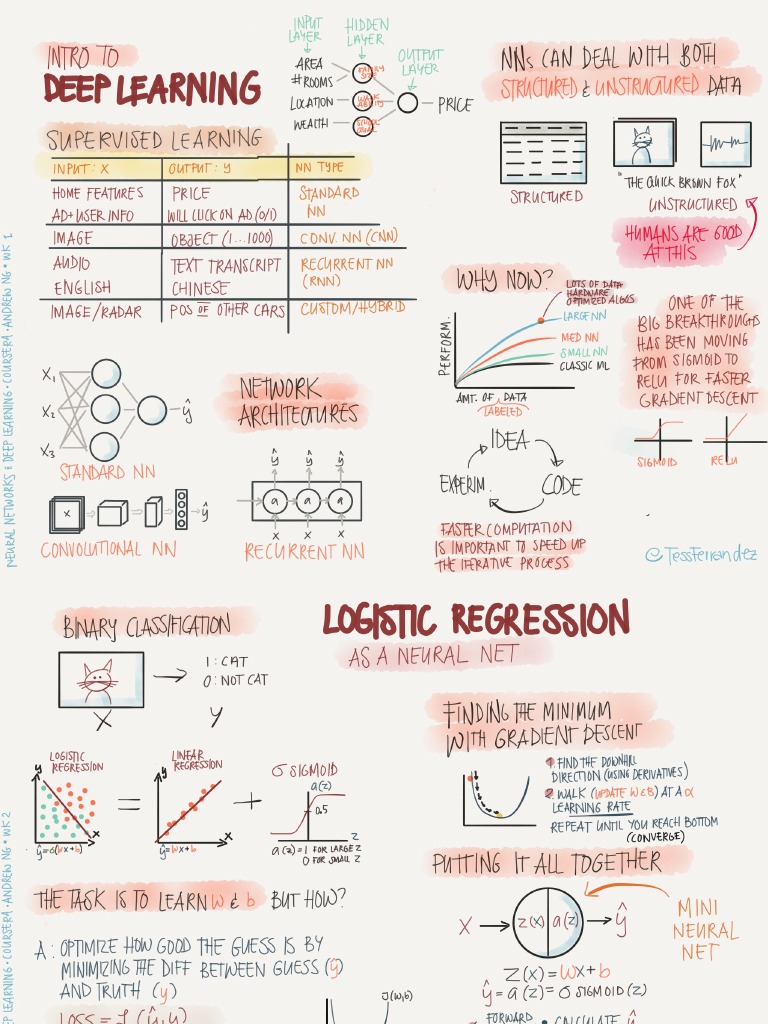 INTRO TO
DEEP LEARNING
INPUT LAYER
HIDDEN LAYER
OUTPUT LAYER
AREA
# ROOMS
LOCATION
WEALTH
FAMILY SIZE
WALK ABILITY
SCHOOL QUAL
PRICE
SUPERVISED LEARNING
INPUT: X OUTPUT: Y NN TYPE
HOME FEATURES PRICE STANDARD
AD+USER INFO WILL CLICK ON AD (0/1) NN
IMAGE OBJECT (1...1000) CONV. NN (CNN)
AUDIO TEXT TRANSCRIPT RECURRENT NN
ENGLISH CHINESE (RNN)
IMAGE/RADAR POS OF OTHER CARS CUSTOM/HYBRID
NEURAL NETWORKS & DEEP LEARNING • COURSERA • ANDREW NG • WK 1
X₁
X₂
X₃
ŷ
STANDARD NN
X
ŷ
CONVOLUTIONAL NN
NETWORK
ARCHITECTURES
ŷ ŷ ŷ
a a a
X X X
RECURRENT NN
NNs CAN DEAL WITH BOTH
STRUCTURED & UNSTRUCTURED DATA
STRUCTURED
"THE QUICK BROWN FOX"
UNSTRUCTURED
HUMANS ARE GOOD
AT THIS
WHY NOW?
LOTS OF DATA
HARDWARE
OPTIMIZED ALGOS
LARGE NN
MED NN
SMALL NN
CLASSIC ML
PERFORM.
AMT. OF DATA
LABELED
ONE OF THE
BIG BREAKTHROUGHS
HAS BEEN MOVING
FROM SIGMOID TO
RELU FOR FASTER
GRADIENT DESCENT
SIGMOID
RELU
IDEA
EXPERIM.
CODE
FASTER COMPUTATION
IS IMPORTANT TO SPEED UP
THE ITERATIVE PROCESS
@TessFerrandez
LOGISTIC REGRESSION
AS A NEURAL NET
BINARY CLASSIFICATION
1: CAT
0: NOT CAT
X
Y
LOGISTIC
REGRESSION
y
x
ŷ=σ(wx+b)
=
LINEAR
REGRESSION
y
x
ŷ=wx+b
+
σ SIGMOID
a(z)
0.5
z
a(z)=1 FOR LARGE z
0 FOR SMALL z
THE TASK IS TO LEARN w & b BUT HOW?
A: OPTIMIZE HOW GOOD THE GUESS IS BY
MINIMIZING THE DIFF BETWEEN GUESS (ŷ)
AND TRUTH (y)
LOSS = ℒ(ŷ,y)
J(w,b)
FINDING THE MINIMUM
WITH GRADIENT DESCENT
1. FIND THE DOWNHILL
DIRECTION (USING DERIVATIVES)
2. WALK (UPDATE w & b) AT A α
LEARNING RATE
REPEAT UNTIL YOU REACH BOTTOM
(CONVERGE)
PUTTING IT ALL TOGETHER
X
z(x) a(z)
ŷ
MINI
NEURAL
NET
Z(x)=wx+b
ŷ=a(z)=σ SIGMOID(z)
FORWARD • CALCULATE ŷ
DEEP LEARNING • COURSERA • ANDREW NG • WK 2